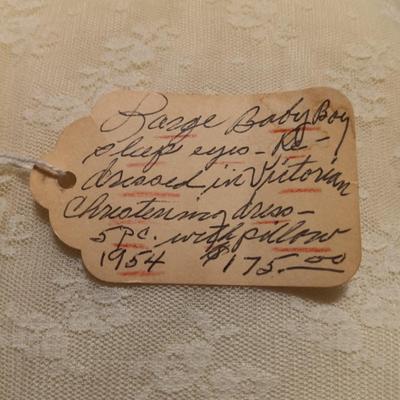 Large Baby Boy
sleep eyes - Re-
dressed in Victorian
Christening dress -
5 pc. with pillow
1954 $175.00